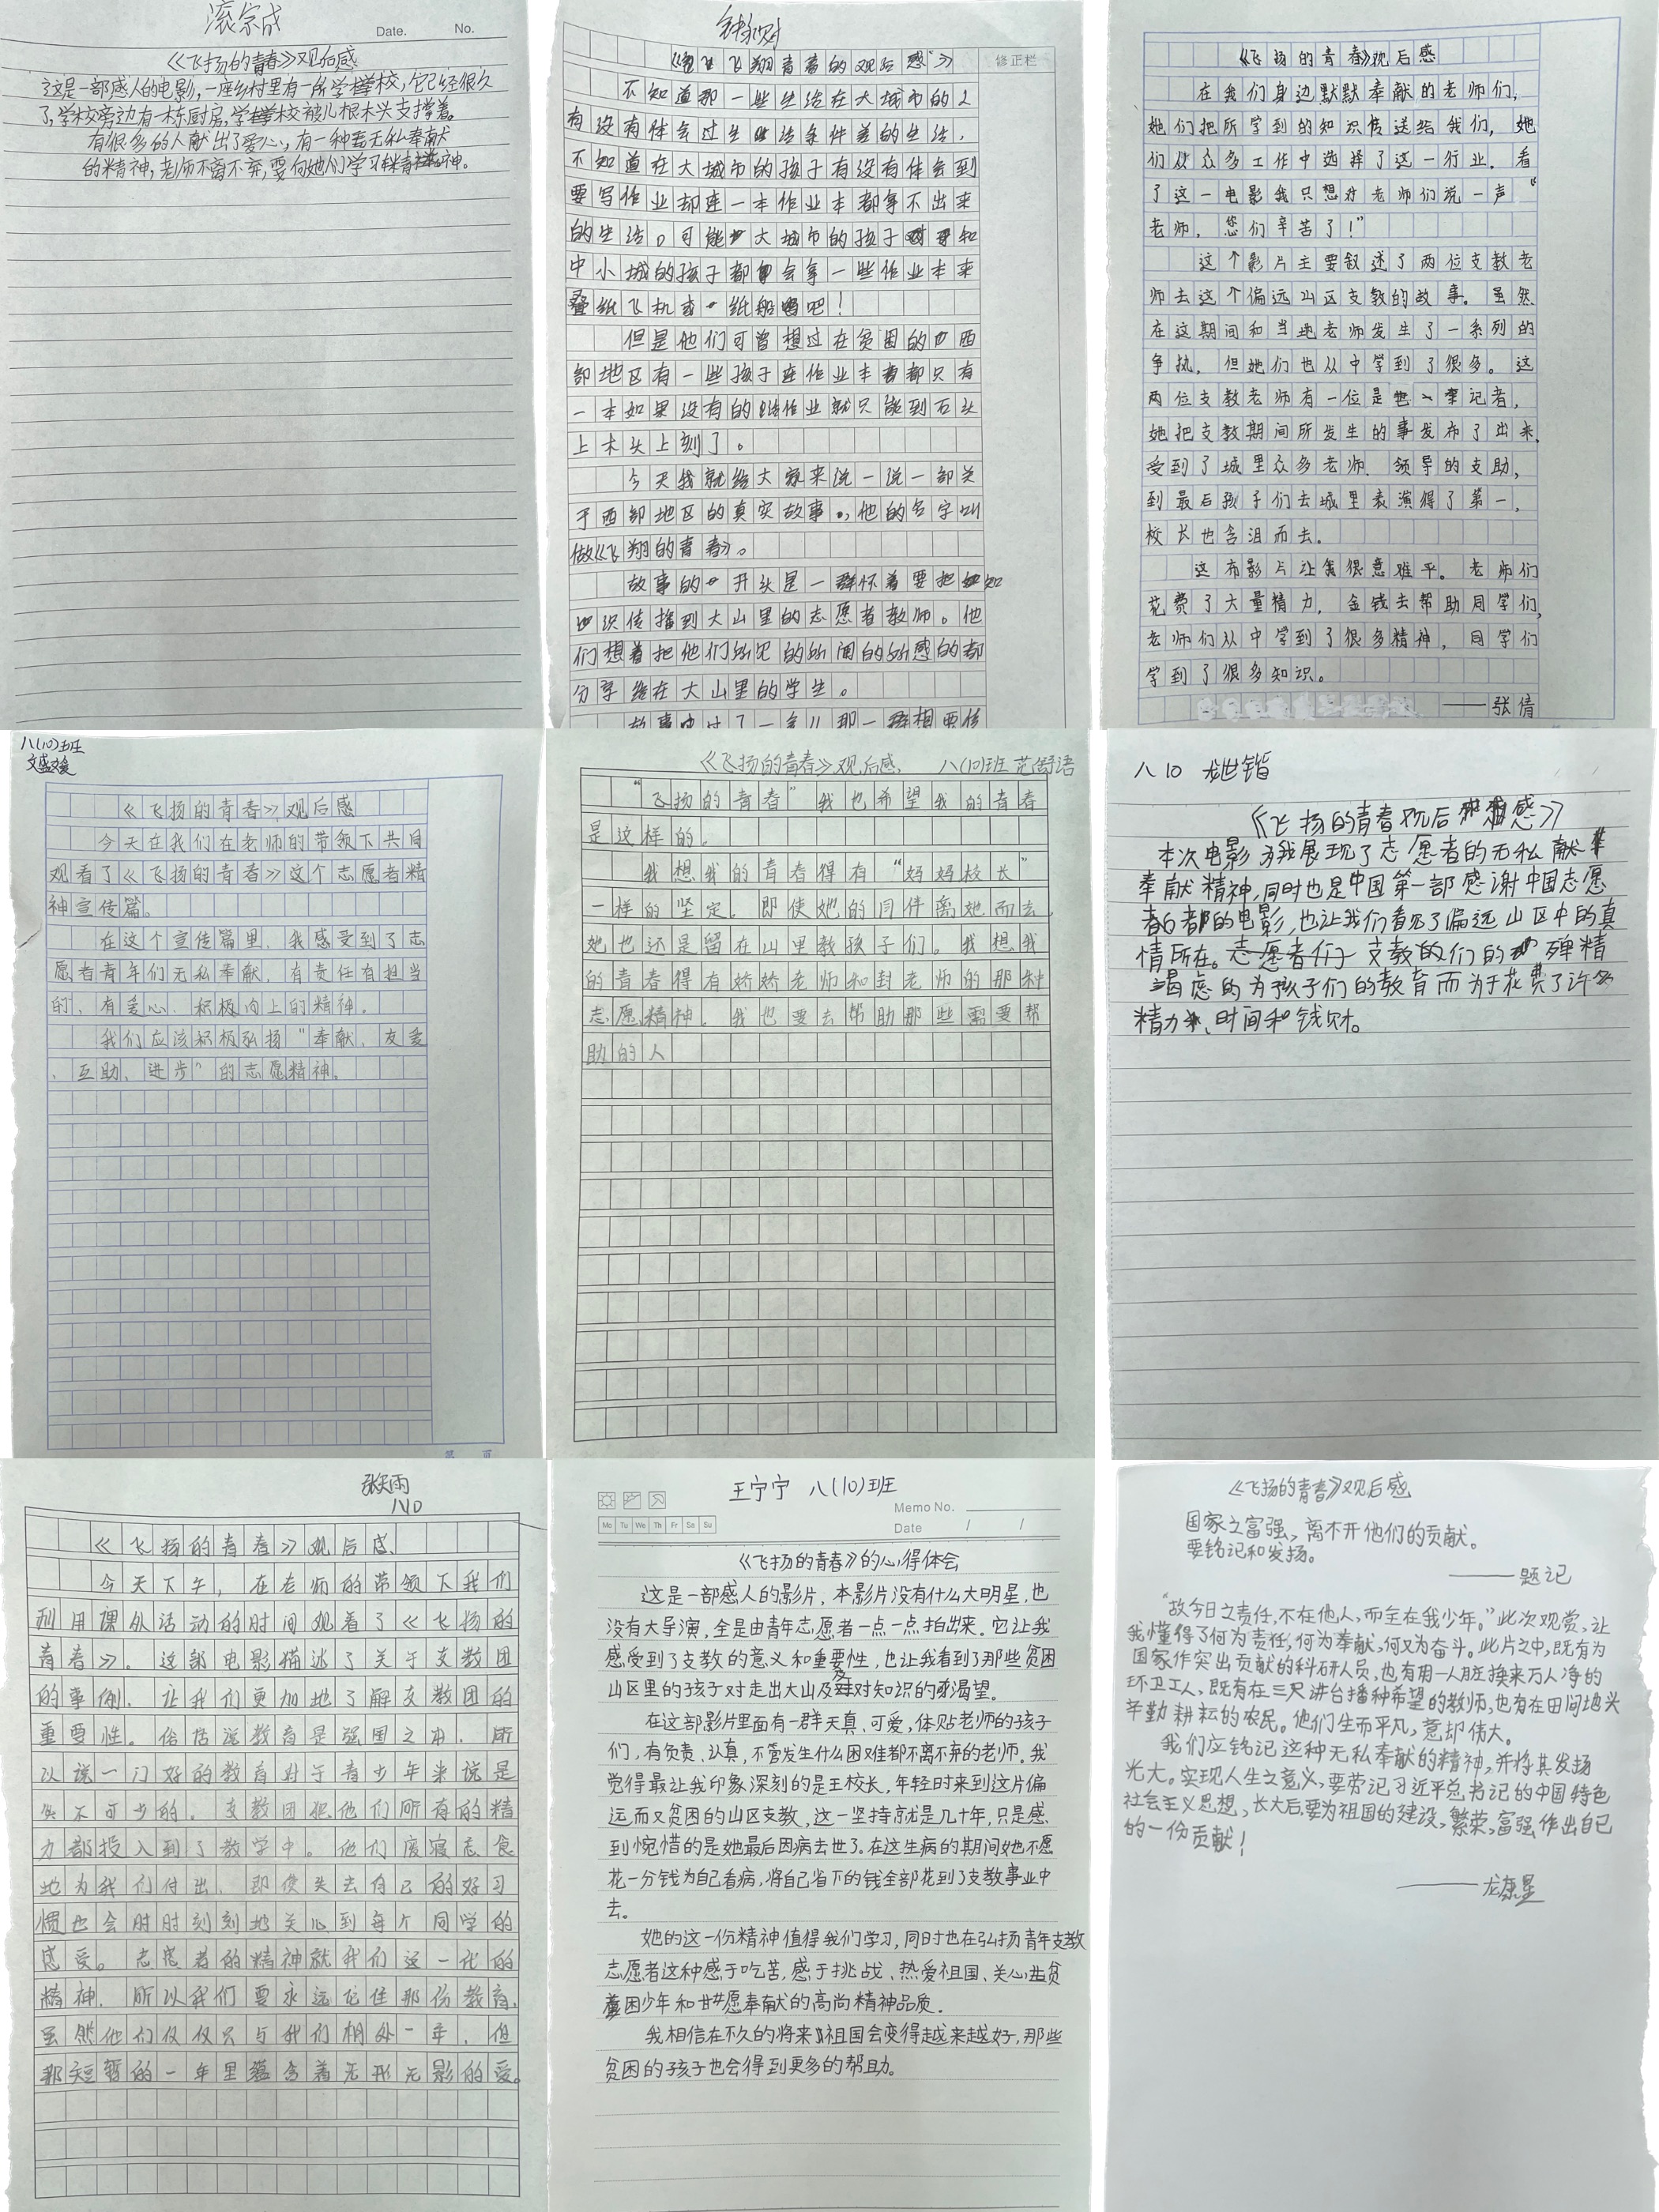 滚宗成
Date. No.
《飞扬的青春》观后感
这是一部感人的电影,一座乡村里有一所学校,它已经很久
了,学校旁边有一栋厨房,学校被儿根木头支撑着。
有很多的人献出了爱心,有一种无私奉献
的精神,老师不离不弃,要向她们学习精神。
修正栏
飞翔青春的观后感
不知道那一些生活在大城市的人
有没有体会过生活条件差的生活,
不知道在大城市的孩子有没有体会到
要写作业却连一本作业本都拿不出来
的生活。可能大城市的孩子和
中小城的孩子都会拿一些作业本来
叠纸飞机或纸船吧!
但是他们可曾想过在贫困的西
部地区有一些孩子连作业本都只有
一本如果没有的话作业就只能到石头
上木头上刻了。
今天我就给大家来说一说一部关
于西部地区的真实故事,他的名字叫
做《飞翔的青春》。
故事的开头是一群怀着要把知
识传播到大山里的志愿者教师。他
们想着把他们所见的所闻的所感的都
分享给在大山里的学生。
故事中过了一会儿那一群想要传
《飞扬的青春》观后感
在我们身边默默奉献的老师们,
她们把所学到的知识传送给我们,她
们从众多工作中选择了这一行业.看
了这一电影我只想对老师们说一声“
老师,您们辛苦了!”
这个影片主要叙述了两位支教老
师去这个偏远山区支教的故事。虽然
在这期间和当地老师发生了一系列的
争执,但她们也从中学到了很多。这
两位支教老师有一位是记者,
她把支教期间所发生的事发布了出来,
受到了城里众多老师、领导的支助,
到最后孩子们去城里表演得了第一,
校长也含泪而去。
这布影片让我很意难平。老师们
花费了大量精力,金钱去帮助同学们,
老师们从中学到了很多精神,同学们
学到了很多知识。
——张倩
八(10)班
文盛媛
《飞扬的青春》观后感
今天在我们在老师的带领下共同
观看了《飞扬的青春》这个志愿者精
神宣传篇。
在这个宣传篇里,我感受到了志
愿者青年们无私奉献,有责任有担当
的,有爱心.积极向上的精神。
我们应该积极弘扬“奉献、友爱
、互助、进步”的志愿精神。
第 页
《飞扬的青春》观后感, 八(10)班 范舒语
“飞扬的青春”我也希望我的青春
是这样的.
我想我的青春得有“妈妈校长”
一样的坚定,即使她的同伴离她而去,
她也还是留在山里教孩子们。我想我
的青春得有娇娇老师和封老师的那种
志愿精神.我也要去帮助那些需要帮
助的人
八10 龙世锴
《飞扬的青春观后感》
本次电影为我展现了志愿者的无私献
奉献精神,同时也是中国第一部感谢中国志愿
者的电影,也让我们看见了偏远山区中的真
情所在。志愿者们于支教的们的殚精
竭虑的为孩子们的教育而为于花费了许多
精力、时间和钱财。
张天雨
八10
《飞扬的青春》观后感
今天下午,在老师的带领下我们
利用课外活动的时间观看了《飞扬的
青春》。这部电影描述了关于支教团
的事例,让我们更加地了解支教团的
重要性。俗话说教育是强国之本,所
以说一门好的教育对于青少年来说是
必不可少的。支教团把他们所有的精
力都投入到了教学中。他们废寝忘食
地为我们付出,即使失去自己的好习
惯也会时时刻刻地关心到每个同学的
感受。志愿者的精神就我们这一代的
精神,所以我们要永远记住那份教育,
虽然他们仅仅只与我们相处一年,但
那短暂的一年里蕴含着无形无影的爱。
王宁宁 八(10)班
Memo No.
Mo Tu We Th Fr Sa Su
Date / /
《飞扬的青春》的心得体会
这是一部感人的影片,本影片没有什么大明星,也
没有大导演,全是由青年志愿者一点一点拍出来。它让我
感受到了支教的意义和重要性,也让我看到了那些贫困
山区里的孩子对走出大山及对知识的渴望。
在这部影片里面有一群天真、可爱,体贴老师的孩子
们,有负责、认真,不管发生什么困难都不离不弃的老师。我
觉得最让我印象深刻的是王校长,年轻时来到这片偏
远而又贫困的山区支教,这一坚持就是几十年,只是感
到惋惜的是她最后因病去世了。在这生病的期间她不愿
花一分钱为自己看病,将自己省下的钱全部花到了支教事业中
去。
她的这一份精神值得我们学习,同时也在弘扬青年支教
志愿者这种感于吃苦,感于挑战、热爱祖国、关心贫
困少年和甘愿奉献的高尚精神品质.
我相信在不久的将来祖国会变得越来越好,那些
贫困的孩子也会得到更多的帮助。
《飞扬的青春》观后感
国家之富强,离不开他们的贡献。
要铭记和发扬。
——题记
“故今日之责任,不在他人,而全在我少年。”此次观赏,让
我懂得了何为责任,何为奉献,何又为奋斗。此片之中,既有为
国家作突出贡献的科研人员,也有用一人脏换来万人净的
环卫工人,既有在三尺讲台播种希望的教师,也有在田间地头
辛勤耕耘的农民。他们生而平凡,意却伟大。
我们应铭记这种无私奉献的精神,并将其发扬
光大。实现人生之意义,要劳记习近平总书记的中国特色
社会主义思想,长大后要为祖国的建设,繁荣,富强作出自己
的一份贡献!
——龙康星